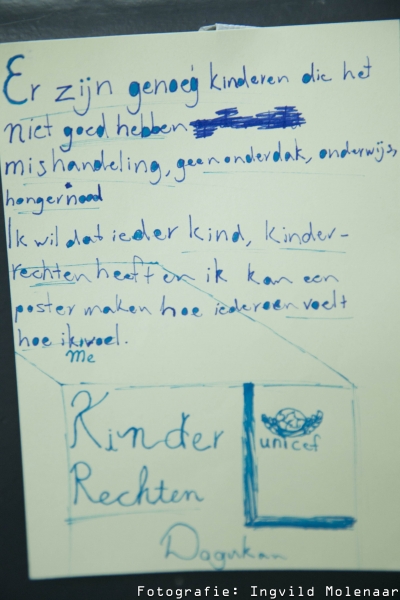 Er zijn genoeg kinderen die het
niet goed hebben
mishandeling, geen onderdak, onderwijs,
hongernood
Ik wil dat ieder kind, kinder-
rechten heeft en ik kan een
poster maken hoe iedereen voelt
hoe ik voel.
me
Kinder
Rechten
unicef
Fotografie: Ingvild Molenaar